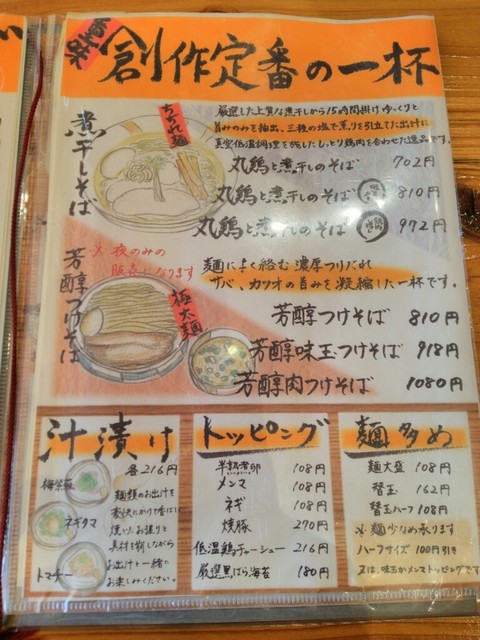 創作定番の一杯
煮干しそば
ちぢれ麺
厳選した上質な煮干しから15時間掛けゆっくりと
旨みのみを抽出、三種の塩で薫りを引立てた出汁に
真空低温調理を施したしっとり鶏肉を合わせた逸品です。
丸鶏と煮干しのそば 702円
丸鶏と煮干しのそば 810円
丸鶏と煮干しのそば 972円
芳醇つけそば
※夜のみの
販売になります
極太麺
麺によく絡む濃厚つけだれ
サバ、カツオの旨みを凝縮した一杯です。
芳醇つけそば 810円
芳醇味玉つけそば 918円
芳醇肉つけそば 1080円
汁漬け
各216円
ネギタマ
トマチー
麺類のお出汁を
焼いたお握りと
具材を崩しながら
お出汁と一緒に
お楽しみください。
トッピング
半熟煮卵 108円
メンマ 108円
ネギ 108円
焼豚 270円
低温鶏チャーシュー 216円
厳選黒ばら海苔 180円
麺多め
麺大盛 108円
替玉 162円
替玉ハーフ 108円
※麺少なめ承ります
ハーフサイズ 100円引き
又は、味玉かメンマトッピングです